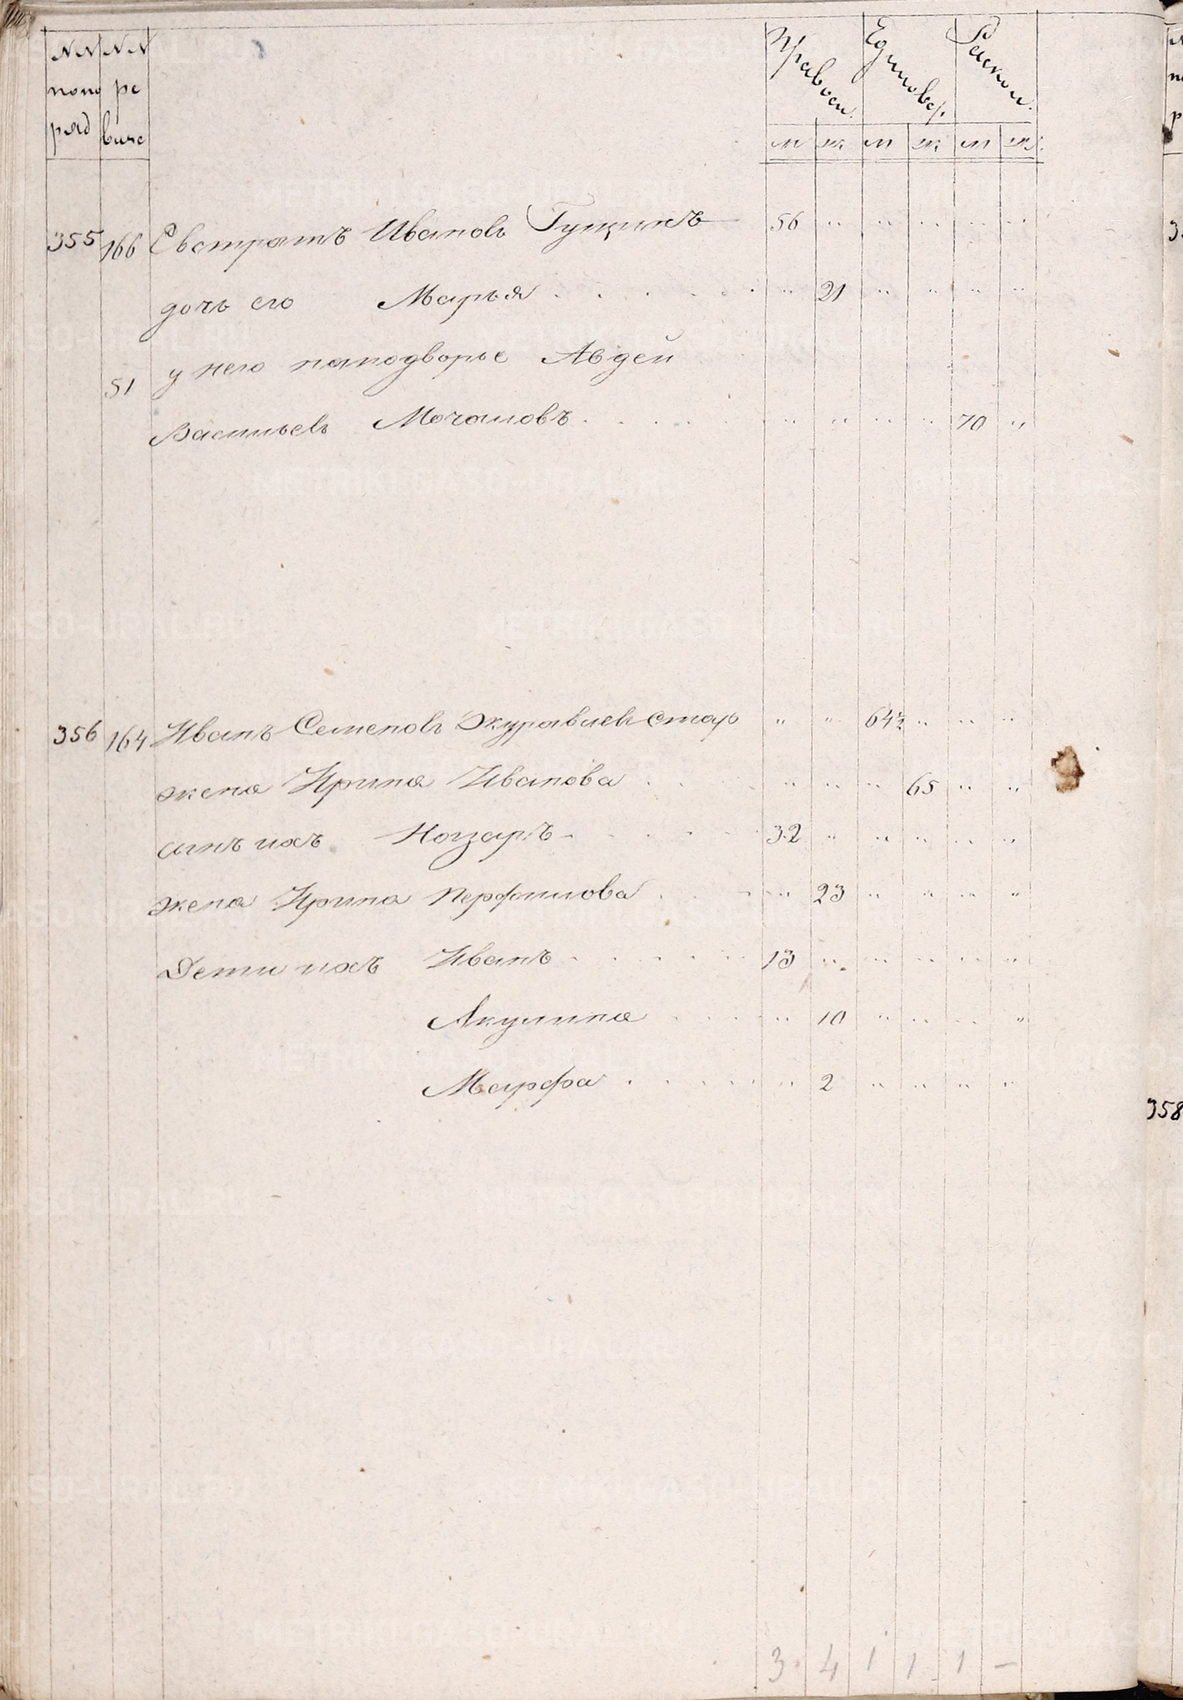 NN NN Правосл. Единовер. Раскол.
попо ре
ряд визс
м ж. м ж. м ж.
355 166 Евстратъ Ивановъ Гущинъ 56 " " " " "
дочь его Марья " 21 " " " "
51 у него наподворье Авдей
Васильевъ Мочаловъ " " " " 70 "
356 164 Иванъ Семеновъ Журавлевъ стар " " 64½ " " "
жена Ирина Иванова " " " 65 " "
сынъ ихъ Назаръ 32 " " " " "
жена Ирина Перфилова " 23 " " " "
Дети ихъ Иванъ 13 " " " " "
Акулина " 10 " " " "
Марфа " 2 " " " "
358
3 4 1 1 1 —